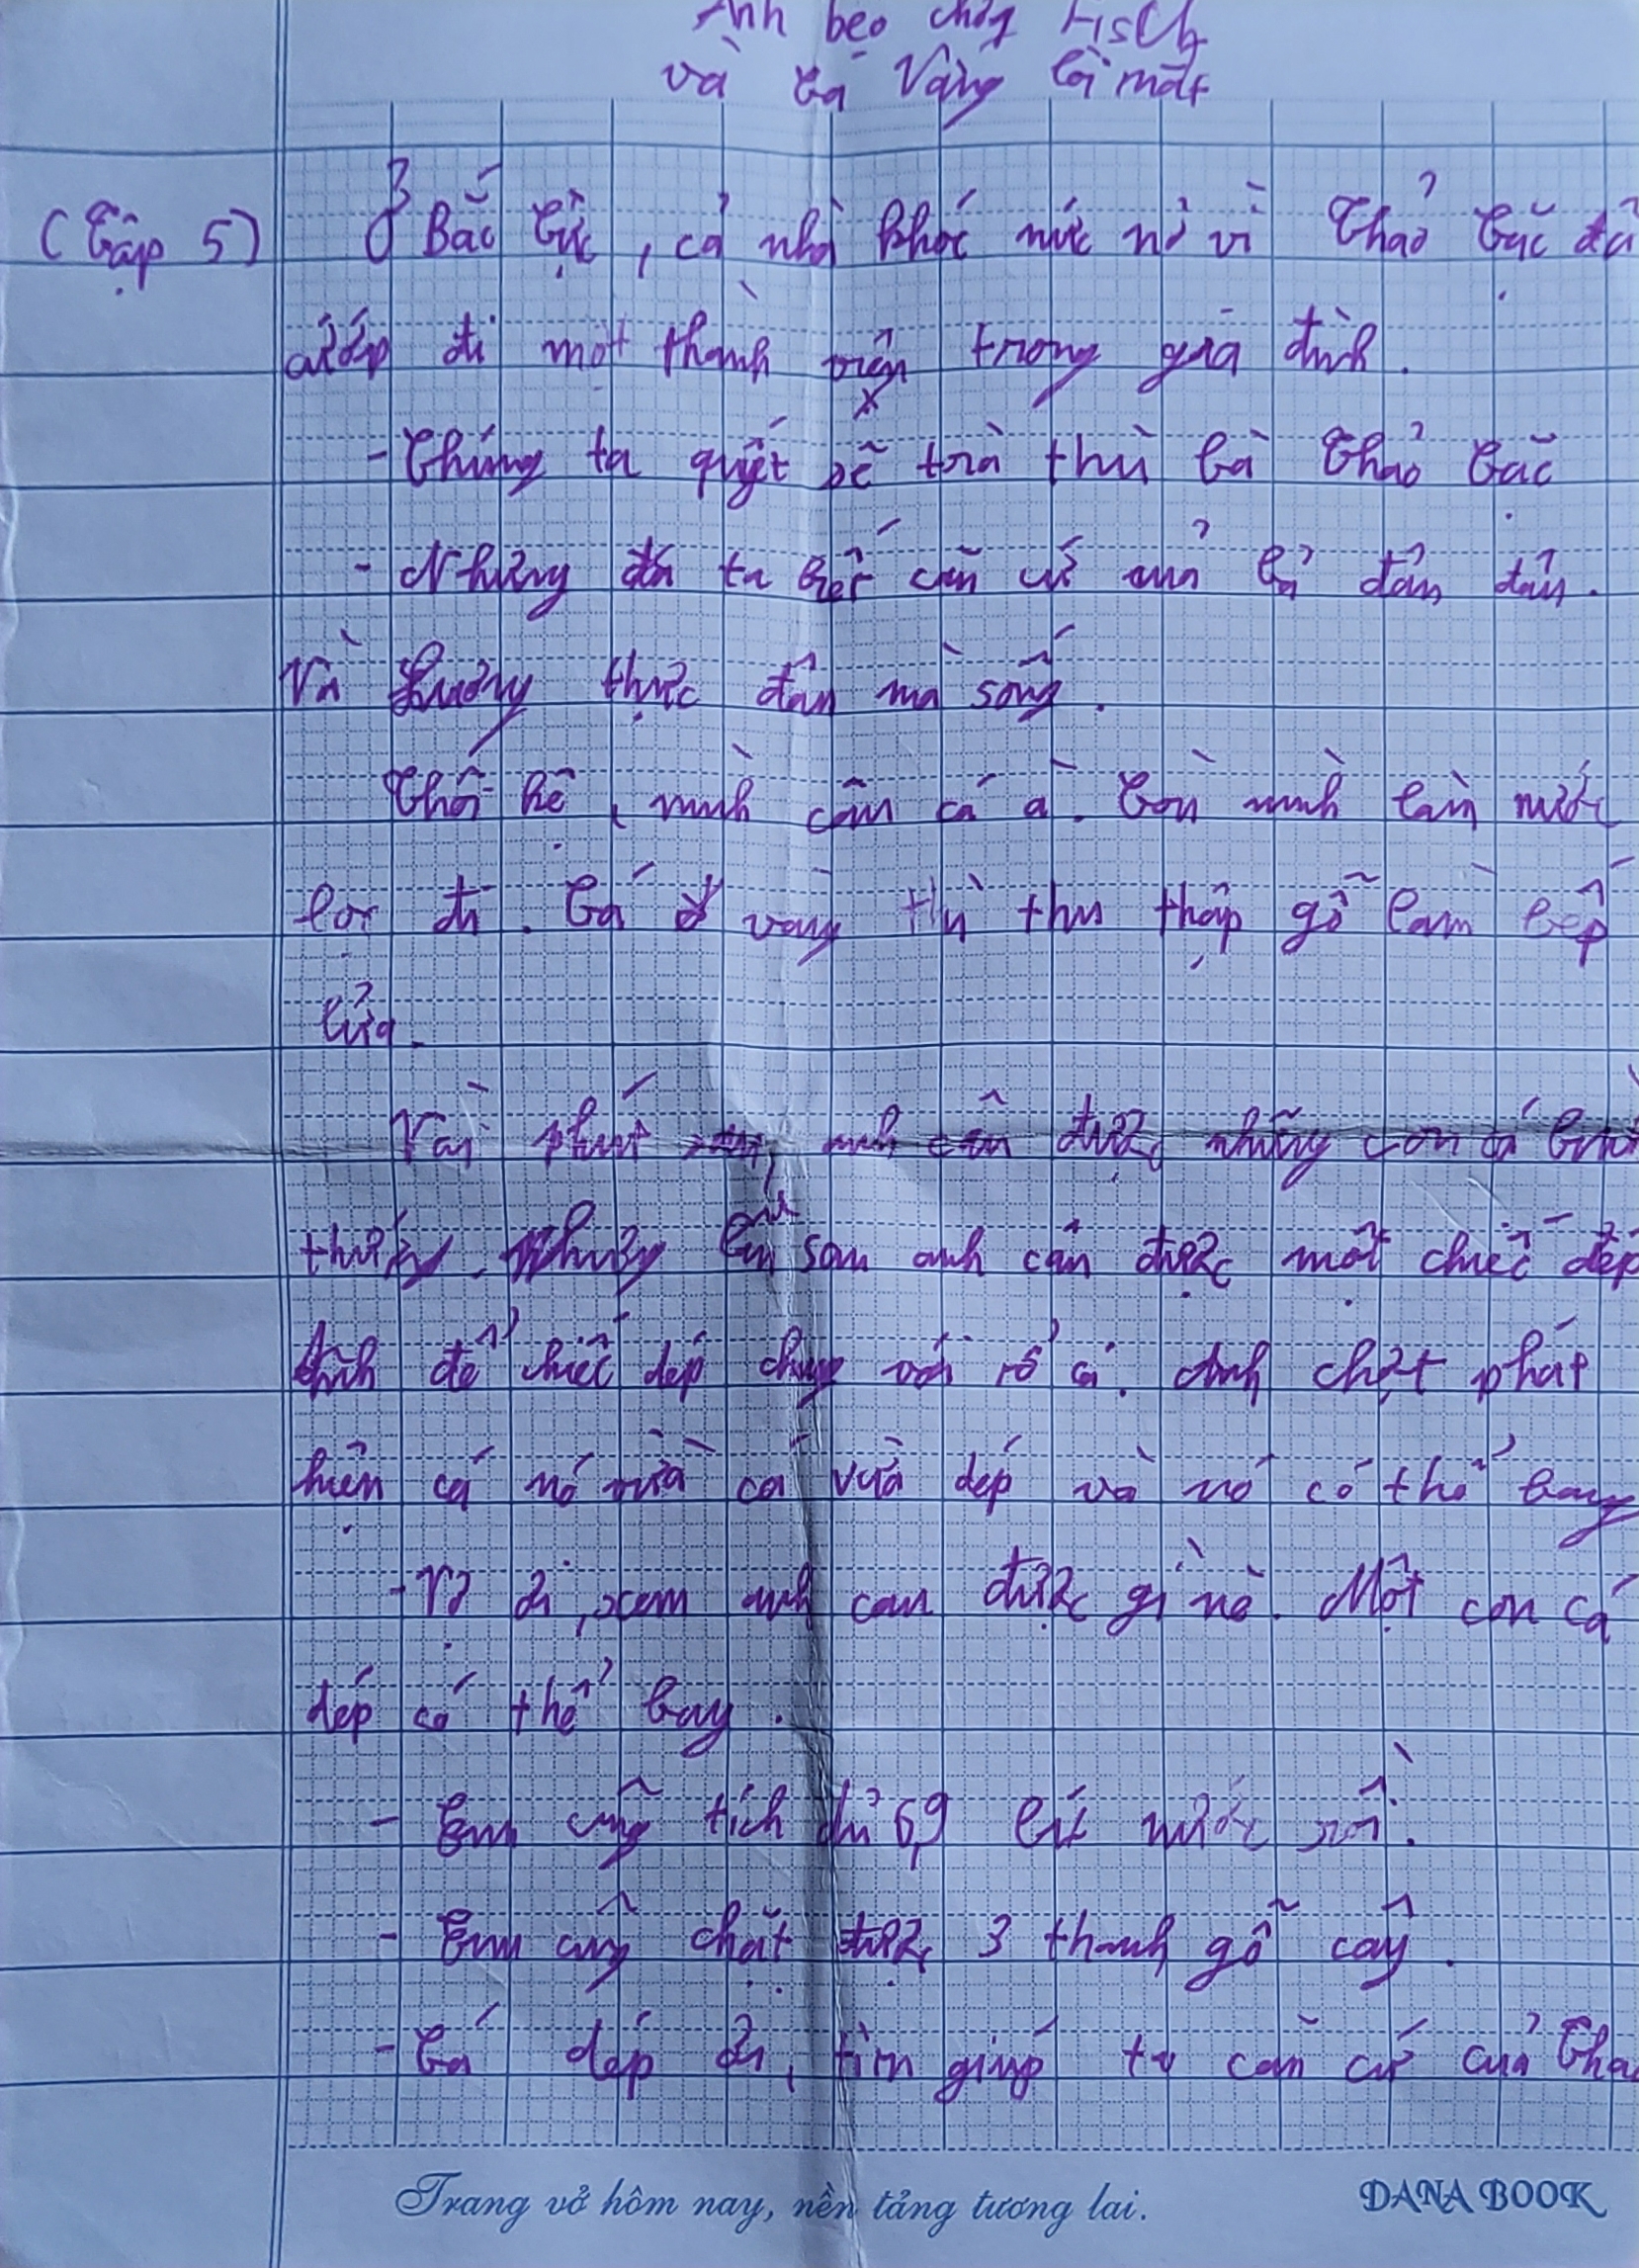 Anh béo chống Fisch
và Cá Vàng lồi mắt
(Tập 5) Ở Bắc Cực, cả nhà khóc nức nở vì Thảo Cặc đã
cướp đi một thành viên trong gia đình.
- Chúng ta quyết sẽ trả thù bà Thảo Cặc
- Nhưng đã ta biết căn cứ của bả đâu đâu.
Và lương thực đâu mà sống.
Thôi kệ, mình câu cá à. Còn mình làm nước
lọc đi. Cá vàng thì thu thập gỗ làm bếp
lửa.
Vài phút anh câu được những con cá bình
thường. Nhưng lần sau anh câu được một chiếc dép
Anh để chiếc dép chung với rổ cá. Anh chợt phát
hiện cá nó vừa cá vừa dép và nó có thể bay
- Vợ ơi, xem anh câu được gì nè. Một con cá
dép có thể bay.
- Em cũng tích đủ 6,9 lít nước rồi.
- Em cũng chặt được 3 thanh gỗ cây.
- Cá dép ơi, tìm giúp ta căn cứ của Thảo
Trang vở hôm nay, nền tảng tương lai. DANA BOOK